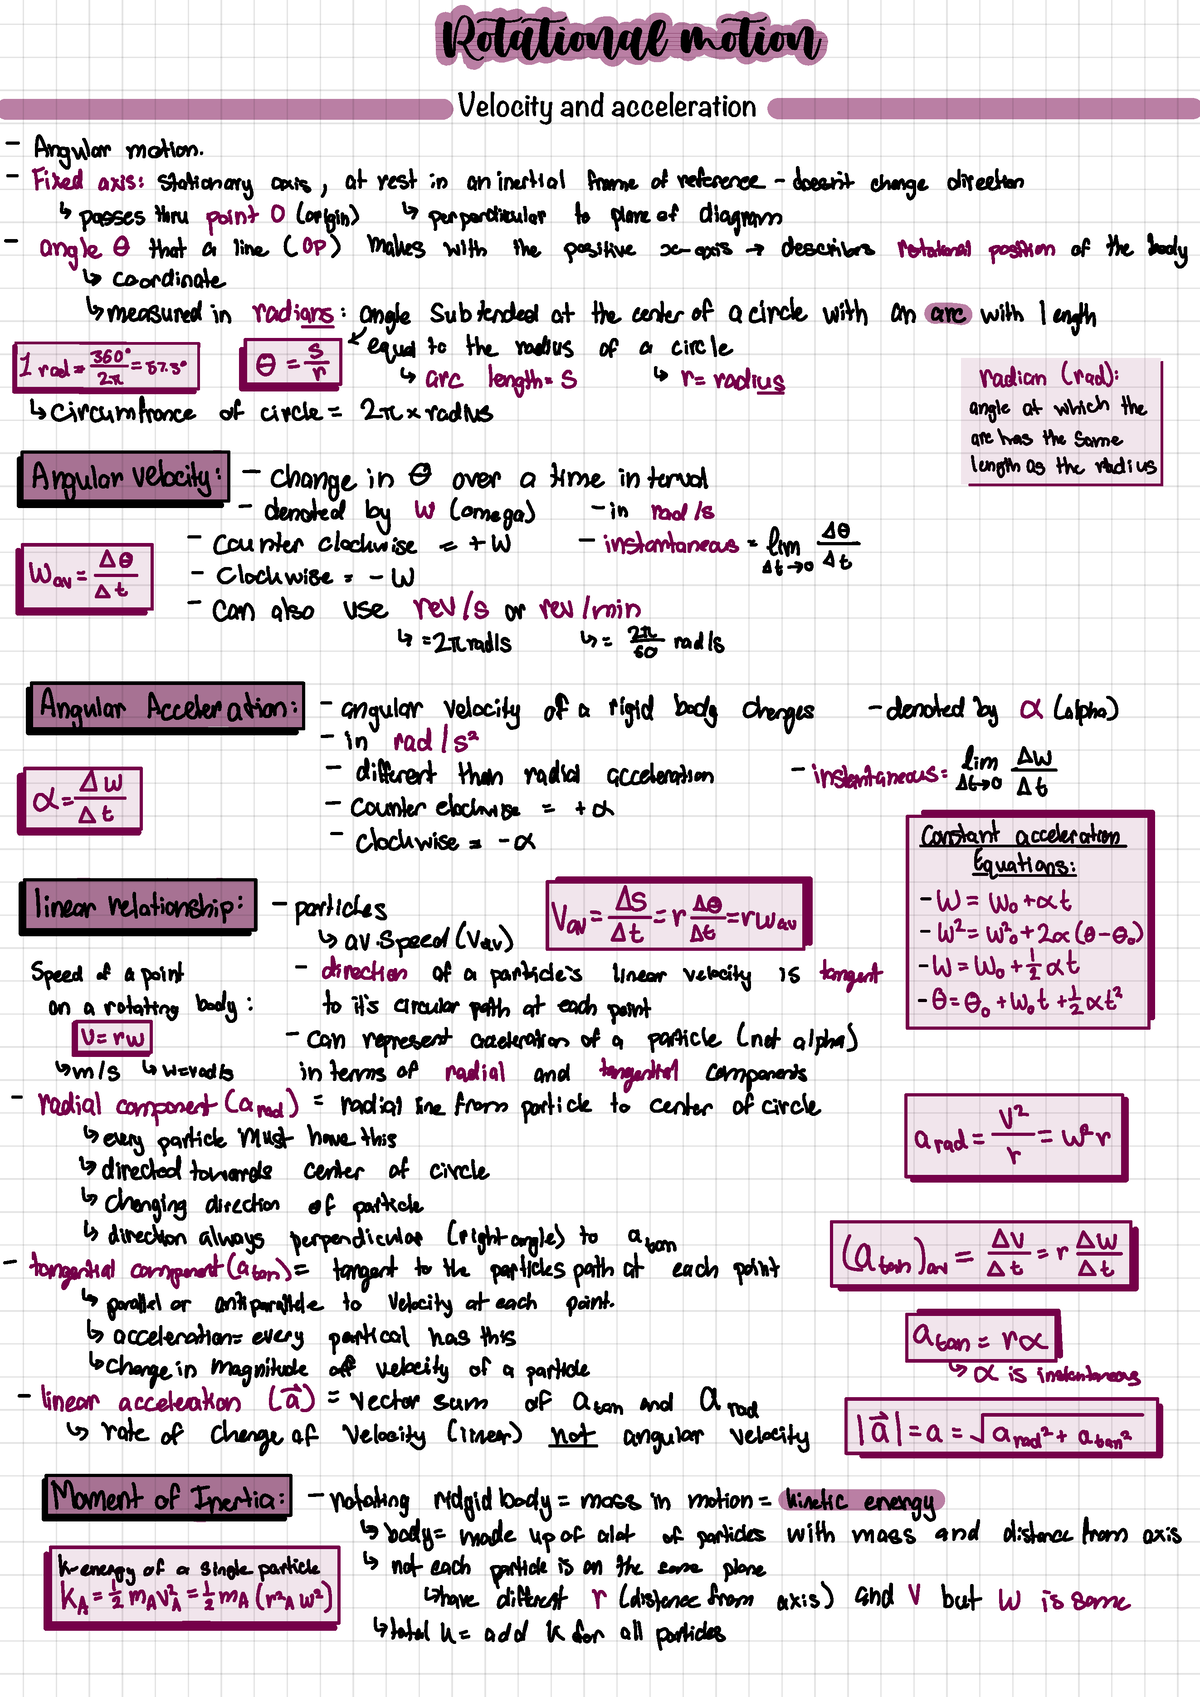 Rotational motion
Velocity and acceleration
- Angular motion.
- Fixed axis: stationary axis, at rest in an inertial frame of reference - doesn't change direction
↳ passes thru point O (origin) ↳ perpendicular to plane of diagram
- angle θ that a line (OP) makes with the positive x-axis → describes rotational position of the body
↳ coordinate
↳ measured in radians: angle subtended at the center of a circle with an arc with length
equal to the radius of a circle
1 rad = 360°/2π = 57.3°
θ = s/r
↳ arc length = S ↳ r = radius
↳ Circumfrance of circle = 2π × radius
radian (rad):
angle at which the
arc has the same
length as the radius
Angular velocity: - change in θ over a time interval
- denoted by w (omega) - in rad/s
- Counter clockwise = + w - instantaneous = lim Δt→0 Δθ/Δt
Wav = Δθ/Δt
- Clockwise = - w
- Can also use rev/s or rev/min
↳ = 2π rad/s ↳ = 2π/60 rad/s
Angular Acceleration: - angular velocity of a rigid body changes - denoted by α (alpha)
- in rad/s²
- different than radial acceleration - instantaneous = lim Δt→0 Δw/Δt
α = Δw/Δt
- Counter clockwise = + α
- Clockwise = - α
Constant acceleration
Equations:
- W = W₀ + αt
- W² = W²₀ + 2α (θ - θ₀)
- W = W₀ + ½ αt
- θ = θ₀ + W₀t + ½ αt²
linear relationship: - particles
↳ av. speed (Vav)
Vav = Δs/Δt = r Δθ/Δt = rwav
- direction of a particle's linear velocity is tangent
to it's circular path at each point
Speed of a point
on a rotating body:
v = rw
↳ m/s ↳ w = rad/s
- Can represent acceleration of a particle (not alpha)
in terms of radial and tangential components
- radial component (arad) = radial line from particle to center of circle
↳ every particle must have this
↳ directed towards center of circle
↳ Changing direction of particle
↳ direction always perpendicular (right angle) to atan
arad = v²/r = w²r
- tangential component (atan) = tangent to the particles path at each point
↳ parallel or antiparallele to velocity at each point.
↳ acceleration = every partical has this
↳ Change in magnitude off velocity of a particle
(atan)av = Δv/Δt = r Δw/Δt
atan = rα
↳ α is instantaneous
- linear acceleration (a⃗) = vector sum of atan and arad
↳ rate of change of velocity (linear) not angular velocity
|a⃗| = a = √arad² + atan²
Moment of Inertia: - rotating ridgid body = mass in motion = kinetic energy
↳ body = made up of alot of particles with mass and distance from axis
↳ not each particle is on the same plane
↳ have different r (distance from axis) and v but w is same
↳ total k = add k for all particles
k-energy of a single particle
kA = ½ mAv²A = ½ mA (r²A w²)